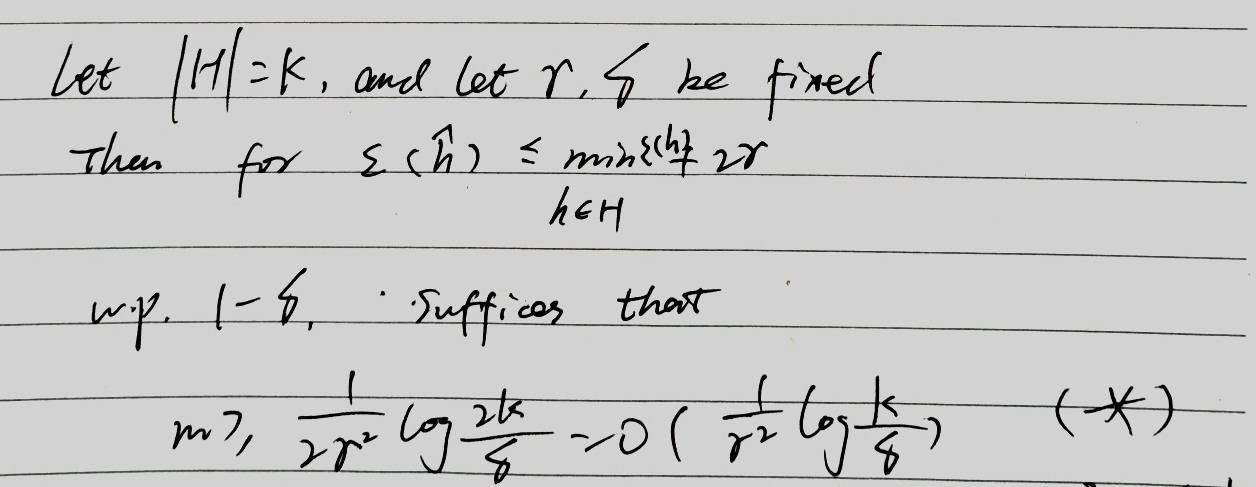 Let |H|=k, and let γ, δ be fixed
Then for ε(ĥ) ≤ min ε(h) + 2γ
h∈H
w.p. 1-δ, suffices that
m ≥ 1/(2γ²) log 2k/δ = O(1/γ² log k/δ) (*)